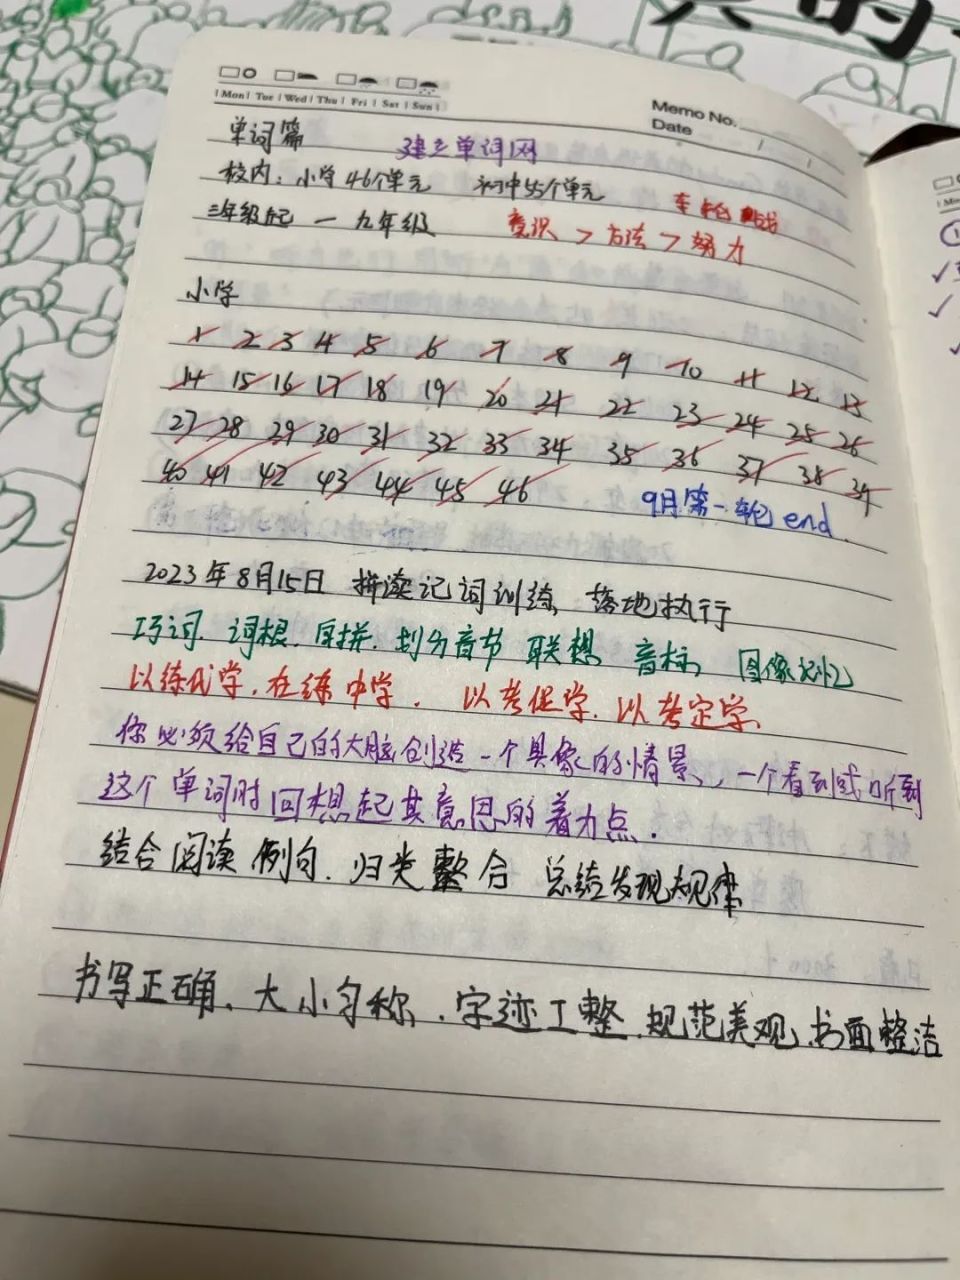 的
Mon Tue Wed Thu Fri Sat Sun
Memo No.
Date / /
单词篇 建立单词网
校内：小学46个单元 初中55个单元 车轮战
三年级起 — 九年级 意识 > 方法 > 努力
小学
1 2 3 4 5 6 7 8 9 10 11 12 13
14 15 16 17 18 19 20 21 22 23 24 25 26
27 28 29 30 31 32 33 34 35 36 37 38 39
40 41 42 43 44 45 46 9月第一轮 end.
2023年8月15日 拼读记词训练 落地执行
巧词. 词根. 自拼. 划分音节 联想 音标, 图像记忆
以练代学. 在练中学. 以考促学. 以考定学.
你必须给自己的大脑创造一个具象的情景, 一个看到或听到
这个单词时回想起其意思的着力点.
结合阅读例句. 归类整合 总结发现规律
书写正确、大小匀称. 字迹工整 规范美观, 书面整洁